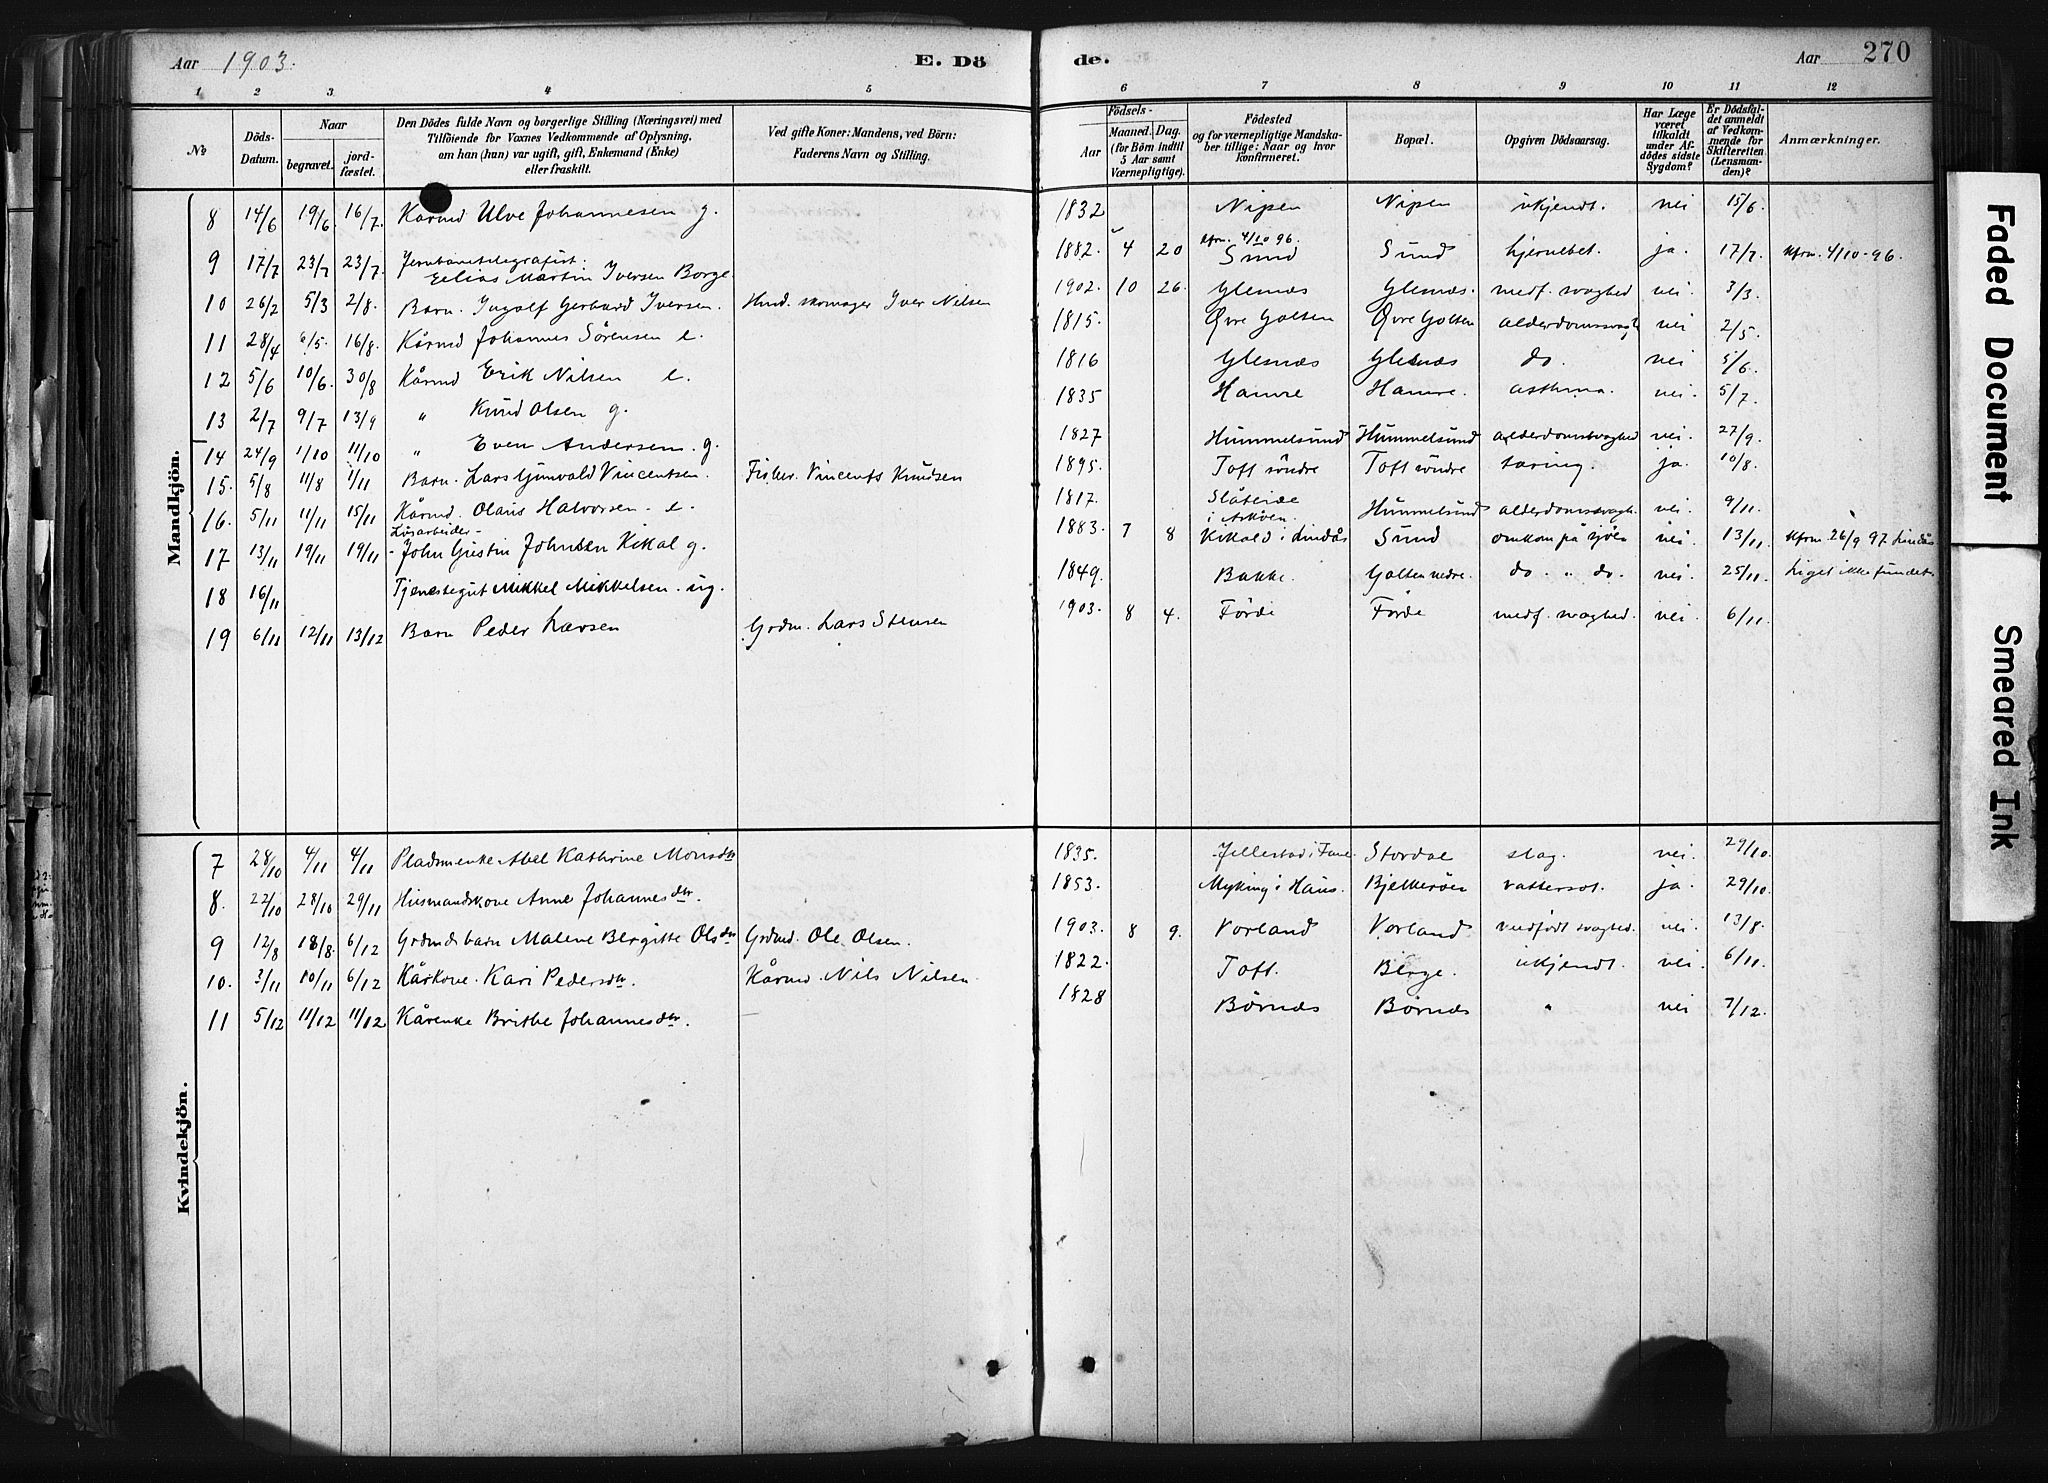 Aar 1903. E. Dö
de. Aar 270
1 2 3 4 5
6 7 8 9 10 11 12
No
Döds-Datum.
Naar
begravet.
jord-fæstet.
Den Dödes fulde Navn og borgerlige Stilling (Næringsvei) med
Tilföiende for Voxnes Vedkommende af Oplysning,
om han (hun) var ugift, gift, Enkemand (Enke)
eller fraskilt.
Ved gifte Koner: Mandens, ved Börn:
Faderens Navn og Stilling.
Födsels-
Aar
Maaned. Dag.
(for Börn indtil
5 Aar samt
Værnepligtige).
Födested
og for værnepligtige Mandska-
ber tillige: Naar og hvor
konfirmeret.
Bopæl.
Opgiven Dödsaarsag.
Har Læge
været
tilkaldt
under Af-
dödes sidste
Sygdom?
Er Dödsfal-
det anmeldt
af Vedkom-
mende for
Skifteretten
(Lensman-
den)?
Anmærkninger.
Mandkjön.
8 14/6 19/6 16/7. Kårmd Ulve Johannesen g. 1832 Nipen Nipen ukjendt. nei 15/6.
9 17/7 23/7 23/7 Jernbanetelegrafist. Eelias Martin Iversen Borge 1882. 4 20 kfrm. 4/10 96. Sund Sund hjernebet. ja. 17/7. Kfrm. 4/10-96.
10 26/2 5/3 2/8. Barn. Ingolf Gerhard Iversen. Husd. skomager Iver Nilsen 1902. 10 26. Glesnæs Glesnæs. medf. svaghed nei. 3/3.
11 28/4 6/5. 16/8. Kårmd Johannes Sörensen e. 1815. Øvre Golten Øvre Golten alderdomssvagh nei 2/5.
12 5/6 10/6. 30/8 Kårmd Erik Nilsen e. 1816 Glesnæs Glesnæs do. nei 5/6.
13 2/7 9/7 13/9 " Knud Olsen g. 1835 Hamre Hamre. asthma. nei. 5/7.
14 24/9 1/10 11/10 " Even Andersen. g. 1827 Hummelsund Hummelsund alderdomssvaghed nei. 27/9.
15. 5/8 11/8 1/11 Barn. Lars Gunvald Vincentsen. Fisker. Vincents Knudsen 1895. Toft söndre Toft söndre taring. ja. 10/8.
16. 5/11 11/11 15/11 Kårmd. Olaus Halvorsen - e. 1817. Slåteide i Askøen. Hummelsund alderdomssvagh. nei. 9/11.
17 13/11 19/11 19/11 Løsarbeider - John Gjestin Johnsen Kikal g. 1883. 7 8 Kikald i Lindås Sund omkom på sjöen nei. 13/11 Kfrm. 26/9 97. Lindås
18 16/11 Tjenestegut Mikkel Mikkelsen. ug. 1849. Bakke. Golten nedre. do. " do. nei. 25/11. Liget ikke fundet.
19 6/11 12/11 13/12 Barn Peder Larsen Grdm. Lars Stensen 1903. 8 4. Förde Förde medf. svaghed. nei. 6/11.
Kvindekjön.
7 28/10 4/11 4/11 Pladsmenke Abel Kathrine Monsdtr 1835. Fjellestad i Fane. Stordae slag. nei. 29/10.
8. 22/10 28/10 29/11 Husmandskone Anne Johannesdtr. 1853. Myking i Haus. Bjelkeröen vattersot. ja. 29/10.
9 12/8 18/8. 6/12 Grdmdsbarn Malene Bergitte Olsdtr Grdmd. Ole Olsen. 1903. 8 9. Vorland Vorland medfödt svaghed. nei. 13/8.
10. 3/11 10/11 6/12 Kårkone. Kari Pedersdtr. Kårmd. Nils Nilsen 1822. Toft. Berge. ukjendt. nei. 6/11
11 5/12 11/12 11/12 Kårenke Brithe Johannesdtr. 1828 Börnæs Börnæs " nei 7/12.
Faded Document
Smeared Ink